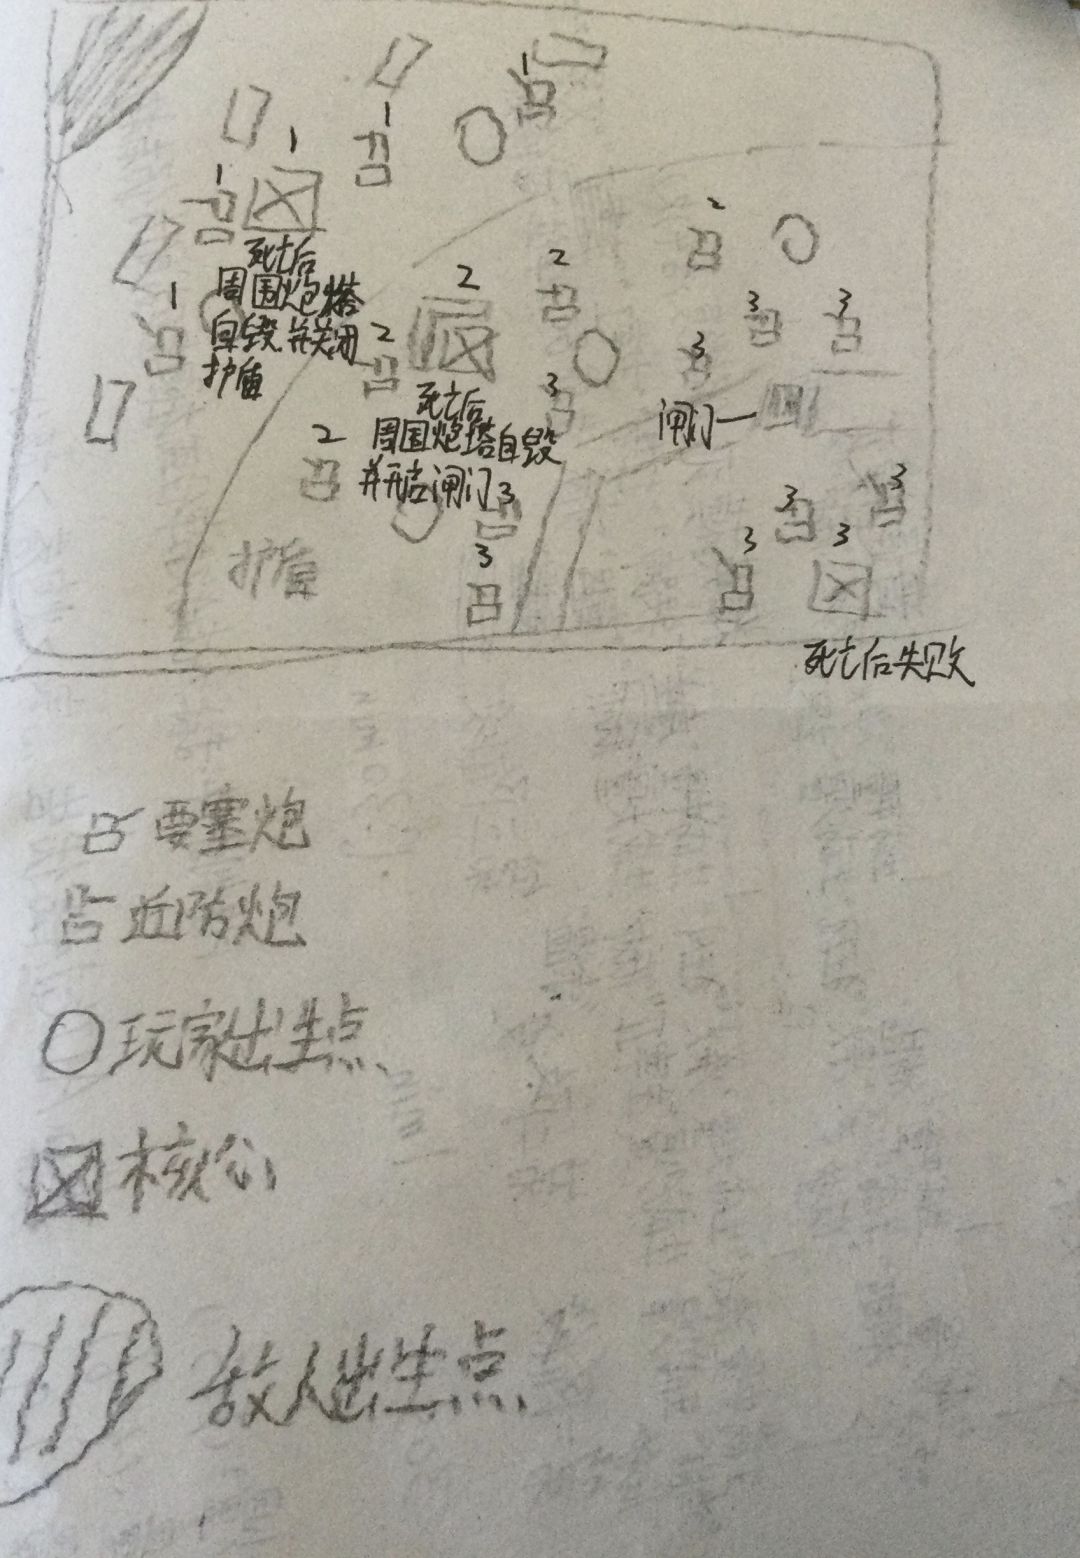 1
1
1
1
死亡后
周围炮塔
自毁并关闭
护盾
1
2
2
2
2
2
死亡后
周围炮塔自毁
并开启闸门
3
3
3
3
3
3
闸门一
3
3
3
3
护盾
死亡后失败
要塞炮
近防炮
玩家出生点
核心
敌人出生点